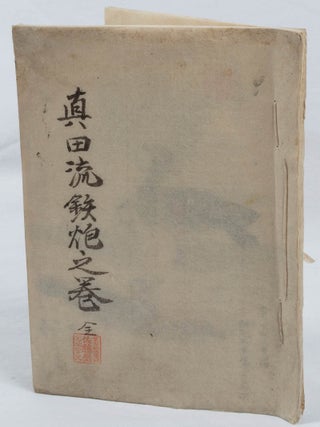 真田流鉄炮之巻
全